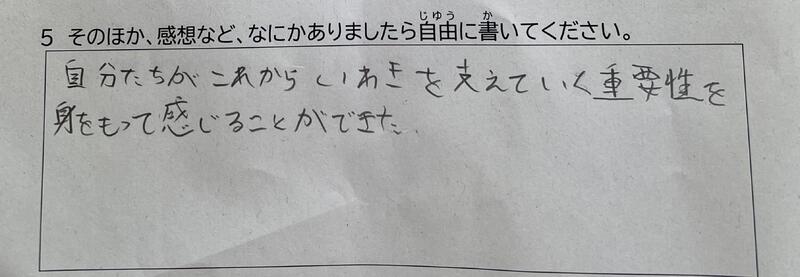 5 そのほか、感想など、なにかありましたら自由に書いてください。
じゆう か
自分たちがこれからいわきを支えていく重要性を
身をもって感じることができた。